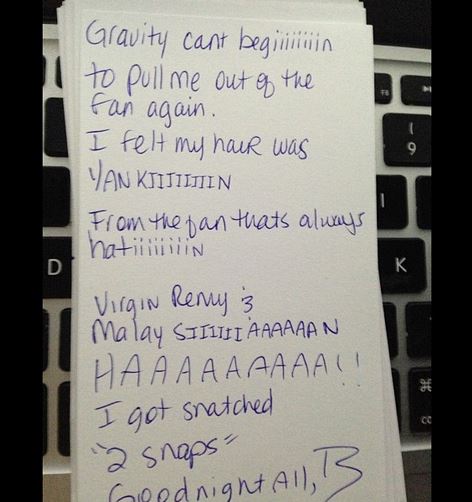 Gravity cant begiiiiiiiin
to pull me out of the
fan again.
I felt my hair was
YANKIIIIIIIIN
From the fan thats always
hatiiiiiiiiiN
Virgin Remy &
Malay SIIIIIIAAAAAAN
HAAAAAAAAAA!!
I got snatched
"2 snaps"
Goodnight All, B
F8
(
9
I
D
K
⌘